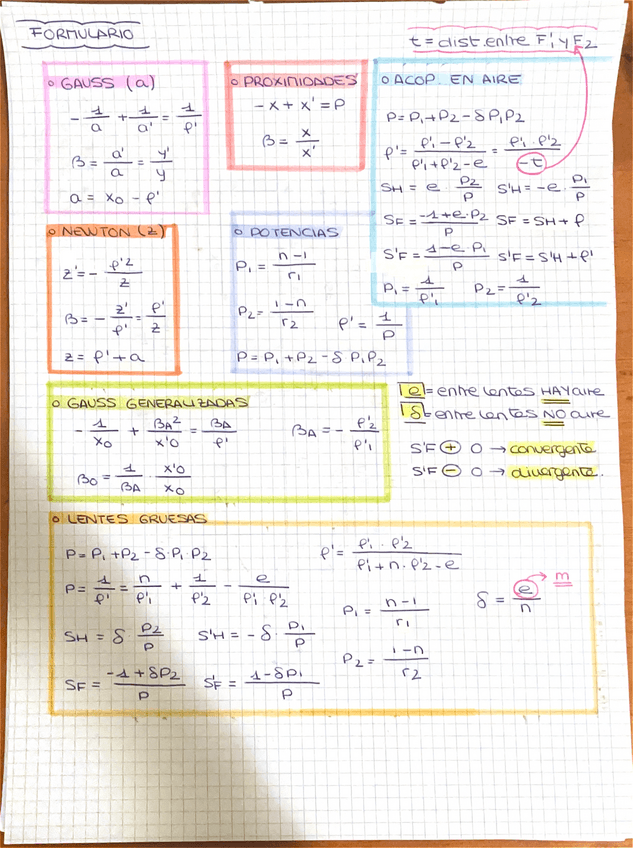 FORMULARIO
t = dist. entre F'₁ y F₂
o GAUSS (a)
- 1/a + 1/a' = 1/f'
β = a'/a = y'/y
a = x₀ - f'
o PROXIMIDADES
- x + x' = P
β = x/x'
o ACOP. EN AIRE
P = P₁ + P₂ - δP₁P₂
f' = (f'₁ - f'₂)/(f'₁ + f'₂ - e) = (f'₁ · f'₂)/(-t)
SH = e · P₂/P   S'H = -e · P₁/P
SF = (-1 + e · P₂)/P   SF = SH + f
S'F = (1 - e · P₁)/P   S'F = S'H + f'
P₁ = 1/f'₁   P₂ = 1/f'₂
o NEWTON (Z)
z' = - f'²/z
β = - z'/f' = f'/z
z = f' + a
o POTENCIAS
P₁ = (n - 1)/r₁
P₂ = (1 - n)/r₂   f' = 1/P
P = P₁ + P₂ - δ P₁P₂
o GAUSS GENERALIZADAS
- 1/x₀ + βA²/x'₀ = βA/f'   βA = - f'₂/f'₁
β₀ = 1/βA · x'₀/x₀
e = entre lentes HAY aire
δ = entre lentes NO aire
S'F ⊕ O → convergente
S'F ⊖ O → divergente.
o LENTES GRUESAS
P = P₁ + P₂ - δ · P₁ · P₂   f' = (f'₁ · f'₂)/(f'₁ + n · f'₂ - e)
P = 1/f' = n/f'₁ + 1/f'₂ - e/(f'₁ · f'₂)   P₁ = (n - 1)/r₁   δ = e/n → m
SH = δ · P₂/P   S'H = - δ · P₁/P   P₂ = (1 - n)/r₂
SF = (-1 + δP₂)/P   S'F = (1 - δP₁)/P